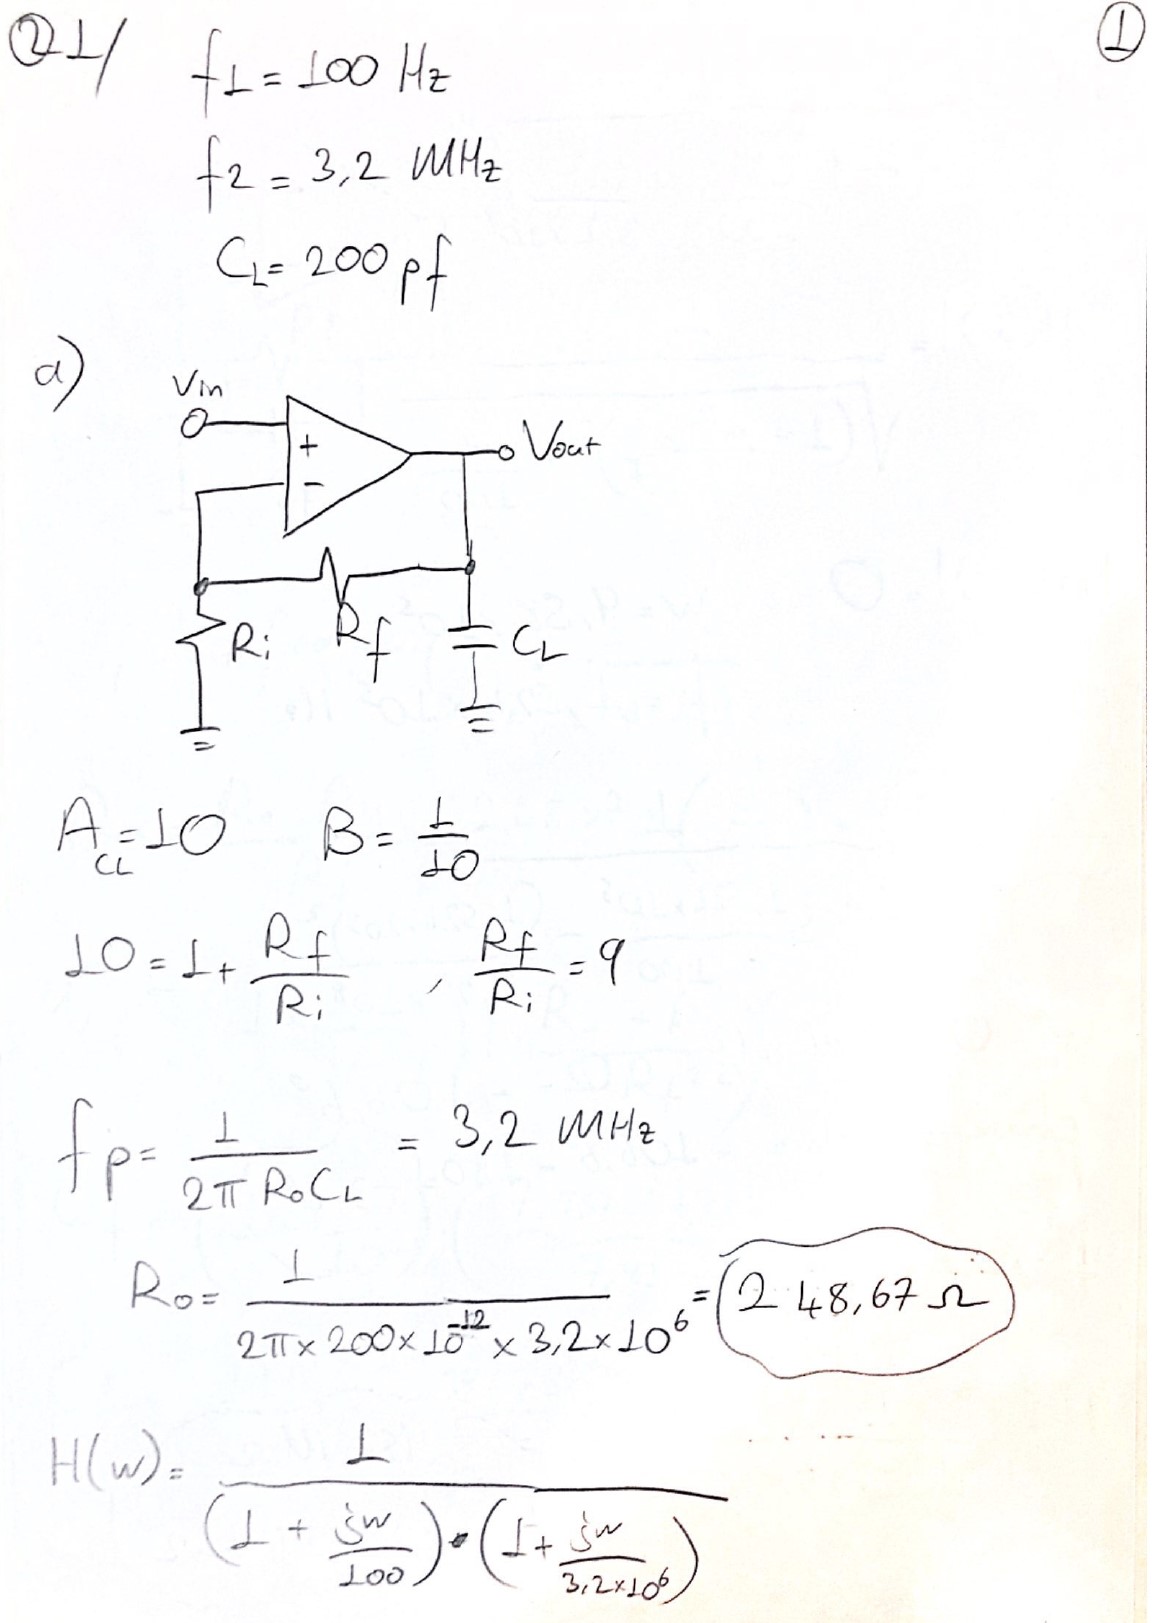 Q1/
1
f1 = 100 Hz
f2 = 3,2 MHz
CL = 200 pf
a)
Vin
+
-
Vout
Ri
Rf
CL
ACL = 10 B = 1/10
10 = 1 + Rf/Ri , Rf/Ri = 9
fp = 1/(2π RoCL) = 3,2 MHz
Ro = 1/(2π x 200 x 10^-12 x 3,2 x 10^6) = 248,67 Ω
H(w) = 1/((1 + jw/100) • (1 + jw/(3,2x10^6)))